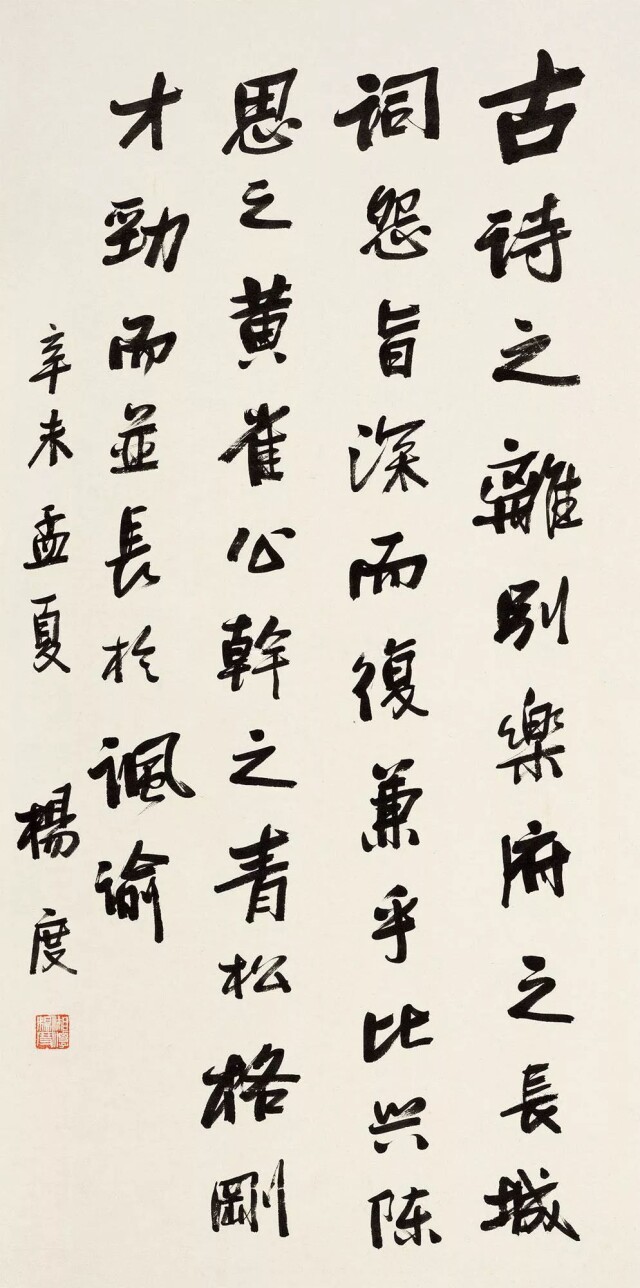 古诗之離别樂府之長城
詞怨旨深而復兼乎比兴陈
思之黄雀公幹之青松格剛
才勁而並長於諷谕
辛未孟夏
楊度